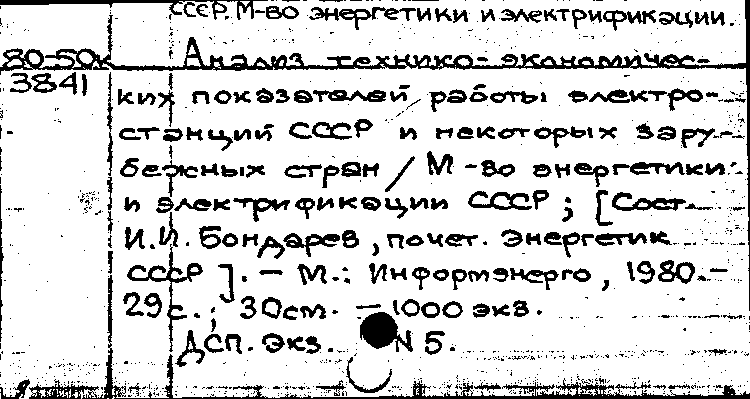 СССР. М-во энергетики и электрификации.
80-50к Анализ технико-экономичес-
3841
ких показателей работы электро-
станций СССР и некоторых зару-
бежных стран / М-во энергетики
и электрификации СССР ; [Сост.
И.И. Бондарев, почет. энергетик
СССР ]. - М.: Информэнерго, 1980.-
29 с. ; 30см. - 1000 экз.
ДСП. Экз. N 5.